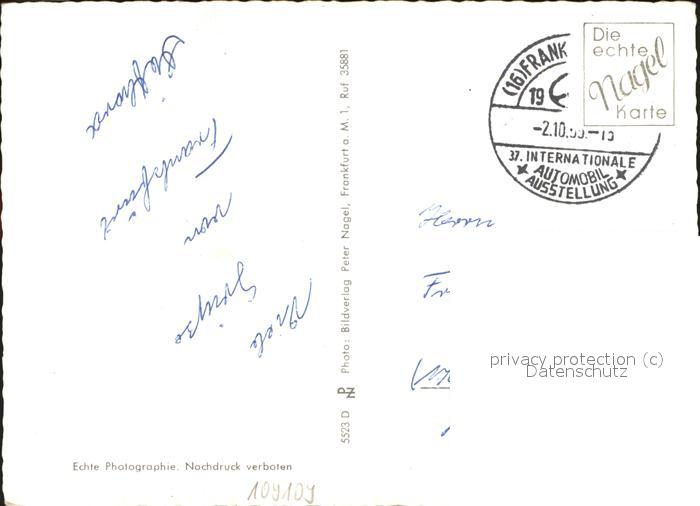 Viele
Grüße
von
Frankfurt
Herrn
Fr
Photo: Bildverlag Peter Nagel, Frankfurt a. M. 1, Ruf 35881
5523 D
PN
Echte Photographie. Nachdruck verboten
109109
(16) FRANK
19
-2.10.55.-15
37. INTERNATIONALE
AUTOMOBIL
AUSSTELLUNG
Die
echte
Nagel
Karte
privacy protection (c)
Datenschutz